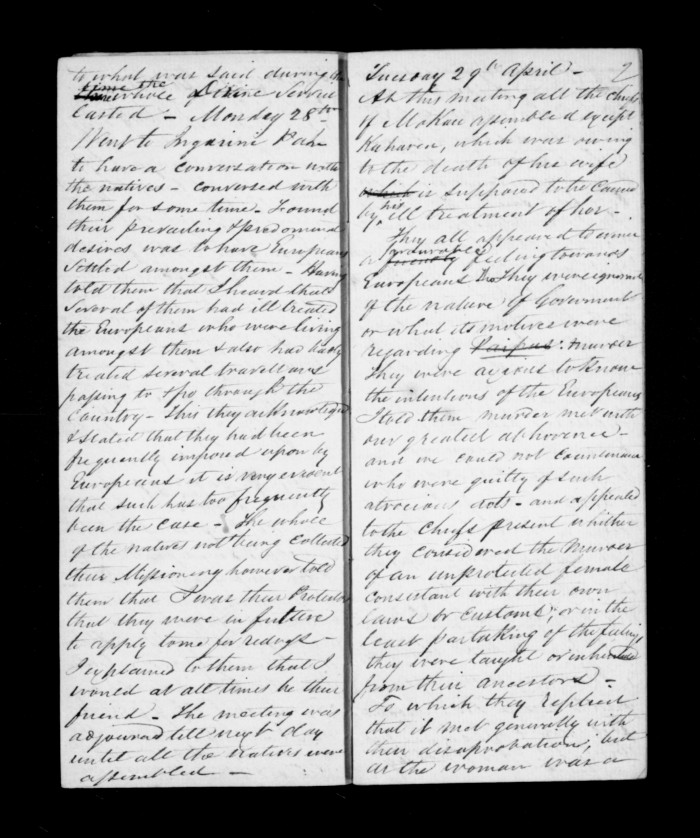 to what was said during the
time the whole of Divine Service
lasted – Monday 28th
Went to Pah
to have a conversation with
the natives – conversed with
them for some time – Found
their prevailing & predominant
desires was to have Europeans
Settled amongst them – Having
told them that I heard that
Several of them had ill treated
the Europeans who were living
amongst them & also had badly
treated several travellers
passing to & fro through the
Country – This they acknowledged
& stated that they had been
frequently imposed upon by
Europeans it is very evident
that such has too frequently
been the case – The whole
of the natives not being collected
their Missionary however told
them that I was their Protector
that they were in future
to apply to me for redress –
I explained to them that I
would at all times be their
friend – The meeting was
adjourned till next day
until all the natives were
assembled –
Tuesday 29th April – 2
At this meeting all the chiefs
of Mokau assembled except
, which was owing
to the death of his wife
which is supposed to be caused
by his ill treatment of her –
They all appeared to evince
a friendly favourable feeling towards
Europeans They were ignorant
of the nature of Goverment
or what its motives were
regarding murder
They were axious to know
the intentions of the Europeans
I told them murder met with
our greatest abhorence –
and we could not countenance
who were guilty of such
atrocious acts – and appealed
to the Chiefs present whither
they considered the Murder
of an unprotected female
consistant with their own
laws or customs; or in the
least partaking of the feeling
they were taught or inherited
from their ancestors –
To which they replied
that it met generally with
their disaprobation; but
as the woman was a